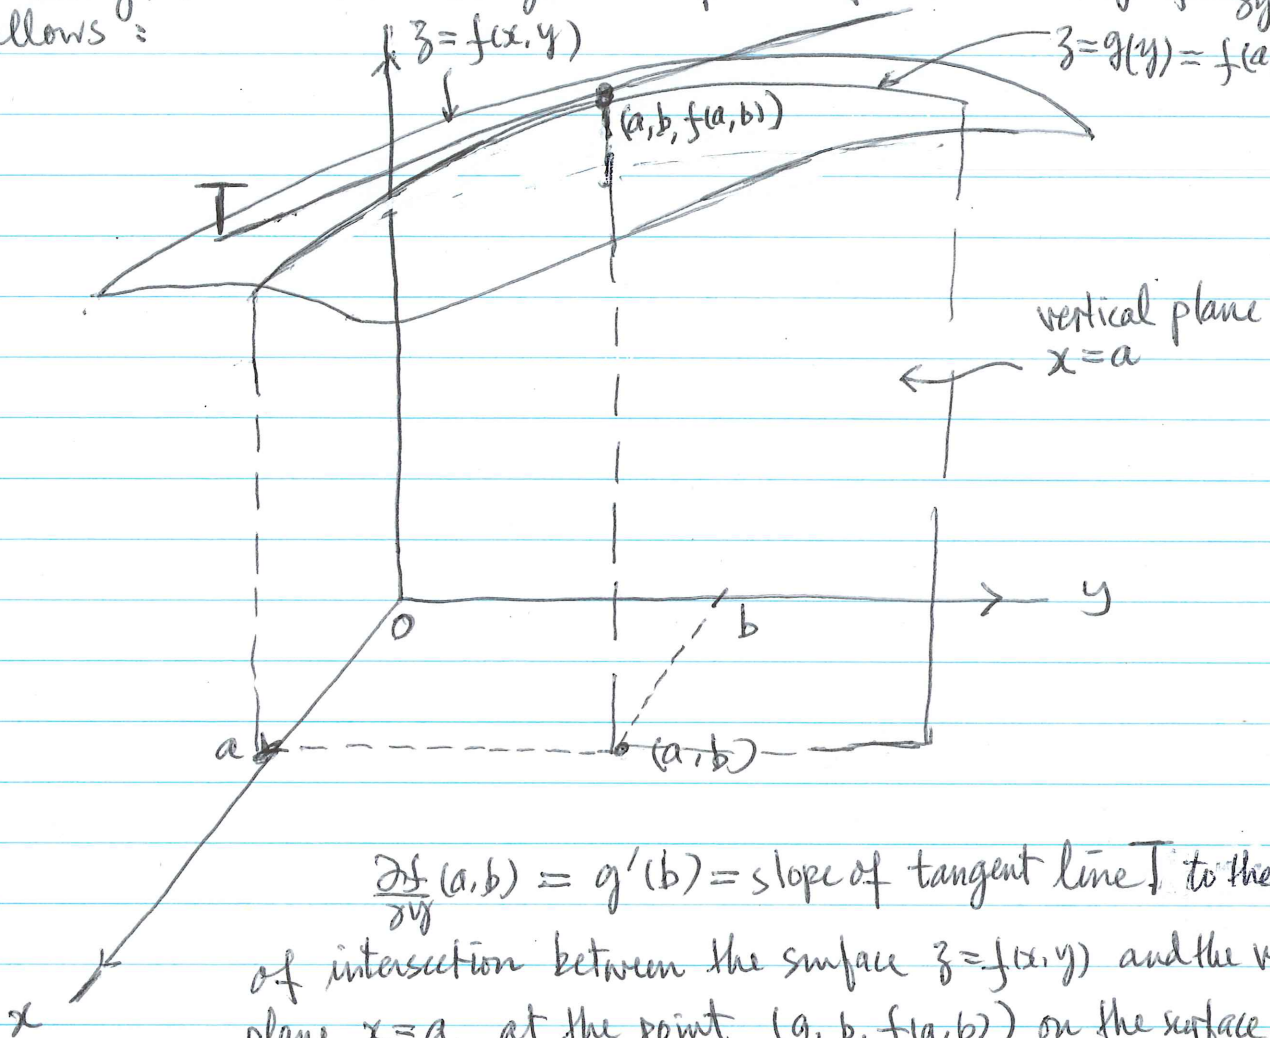 llows :
z = f(x, y)
z = g(y) = f(a
(a, b, f(a, b))
T
vertical plane
x = a
O
b
y
a
(a, b)
∂f/∂y (a, b) = g'(b) = slope of tangent line T to the
of intersection between the surface z = f(x, y) and the v
plane x = a at the point (a, b, f(a, b)) on the surface
x